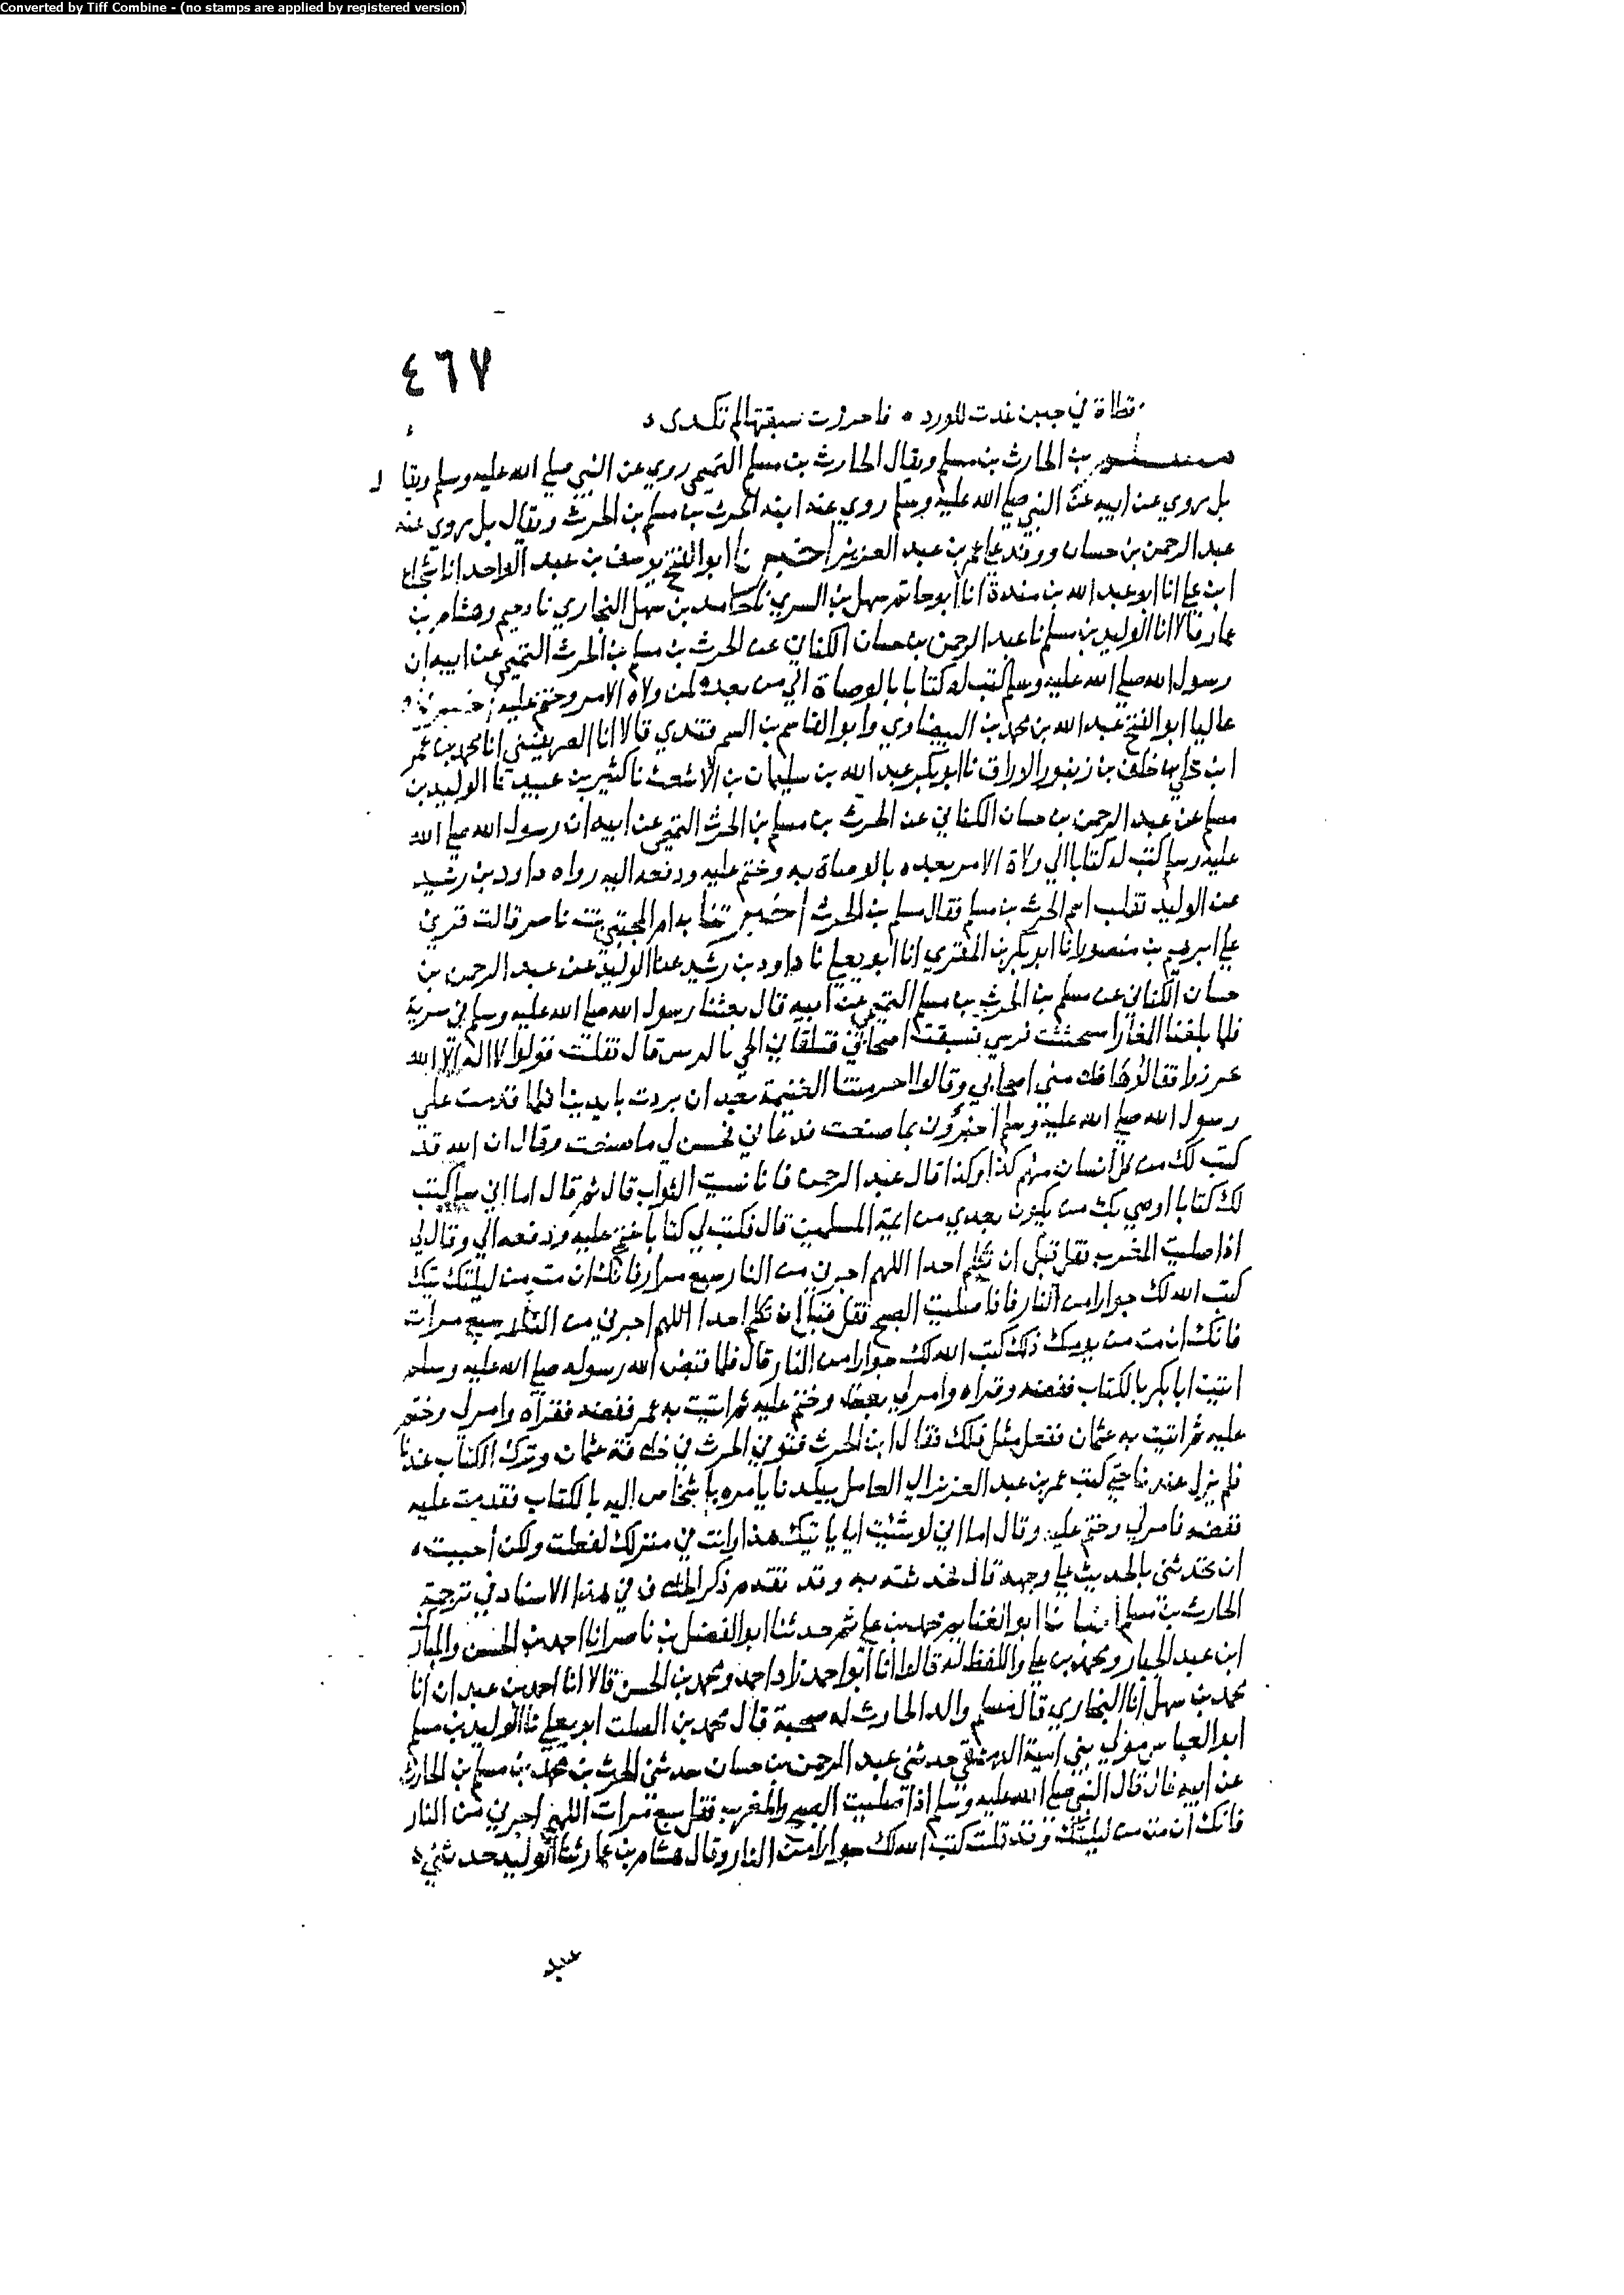 Converted by Tiff Combine - (no stamps are applied by registered version)
٤٦٧
قطاة في حين غدت للورد ه فاحرزت سبقتها لم تكدى ه
مسلم بن الحارث بن مسلم ويقال الحارث بن مسلم التميمي روي عن النبي صلى الله عليه وسلم ويقا ل
بل روي عن ابيه عن النبي صلى الله عليه وسلم روي عنه ابنه الحرث بن مسلم بن الحرث ويقال بل روي عنه
عبد الرحمن بن حسان ووفد على عمر بن عبد العزيز اخبرنا ابو الفتح يوسف بن عبد الواحد انا شجاع
ابن علي انا ابو عبد الله بن مندة انا ابو حاتم سهل بن السري نا حامد بن سهل البخاري نا دحيم وهشام بن
عمار قالا انا الوليد بن مسلم نا عبد الرحمن بن حسان الكناني عن الحرث بن مسلم بن الحرث التميمي عن ابيه ان
رسول الله صلى الله عليه وسلم كتب له كتابا بالوصاة الي من بعده لمن ولاه الامر وختم عليه اخبرناه
عاليا ابو الفتح عبد الله بن محمد بن البيضاوي وابو القاسم بن السمرقندي قالا انا الصريفيني انا محمد بن عمر
ابن علي بن خلف بن زنبور الوراق نا ابو بكر عبد الله بن سليمان بن الاشعث نا كثير بن عبيد نا الوليد بن
مسلم عن عبد الرحمن بن حسان الكناني عن الحرث بن مسلم بن الحرث التميمي عن ابيه ان رسول الله صلى الله
عليه وسلم كتب له كتابا الي ولاة الامر بعده بالوصاة به وختم عليه ودفعه اليه رواه داود بن رشيد
عن الوليد فقلب اسم الحرث بن مسلم فقال مسلم بن الحرث اخبرتنا به ام المجتبى بنت ناصر قالت قرئ
علي ابرهيم بن منصور انا ابو بكر بن المقري انا ابو يعلى نا داود بن رشيد عن الوليد عن عبد الرحمن بن
حسان الكناني عن مسلم بن الحرث بن مسلم التميمي عن ابيه قال بعثنا رسول الله صلى الله عليه وسلم في سرية
فلما بلغنا المغار استحثثت فرسي فسبقت اصحابي فتلقاني الحي بالرنين قال فقلت قولوا لا اله الا الله
تحرزوا فقالوها فلامني اصحابي وقالوا حرمتنا الغنيمة بعد ان بردت بايدينا فلما قدمت علي
رسول الله صلى الله عليه وسلم اخبروه بما صنعت فدعاني فحسن لي ما صنعت وقال ان الله قد
كتب لك من كل انسان منهم كذا وكذا قال عبد الرحمن فانا نسيت الثواب قال ثم قال اما اني ساكتب
لك كتابا اوصي بك من يكون بعدي من ائمة المسلمين قال فكتب لي كتابا ختم عليه ودفعه الي وقال لي
اذا صليت المغرب فقل قبل ان تكلم احدا اللهم اجرني من النار سبع مرار فانك ان مت من ليلتك تيك
كتب الله لك جوارا من النار فاذا صليت الصبح فقل قبل ان تكلم احدا اللهم اجرني من النار سبع مرات
فانك ان مت من يومك ذلك كتب الله لك جوارا من النار قال فلما قبض الله رسوله صلى الله عليه وسلم
اتيت ابا بكر بالكتاب ففضه وقراه وامر لي بعطاء وختم عليه ثم اتيت به عمر ففضه فقراه وامر لي وختم
عليه ثم اتيت به عثمان ففعل مثل ذلك فقال ابن الحرث فتوفي الحرث في خلافة عثمان وترك الكتاب عندنا
فلم يزل عندنا حتي كتب عمر بن عبد العزيز الي العامل ببلدنا يامره باشخاصي اليه بالكتاب فقدمت عليه
ففضه فامر لي وختم عليه وقال اما اني لو شئت ان ياتيك هذا وانت في منزلك لفعلت ولكن احببت
ان تحدثني بالحديث علي وجهه قال فحدثته به وقد تقدم ذكر الخلاف في هذا الاسناد في ترجمة
الحارث بن مسلم انبانا ابو الغنايم محمد بن علي ثم حدثنا ابو الفضل بن ناصر انا احمد بن الحسن والمبارك
ابن عبد الجبار ومحمد بن علي واللفظ له قالوا انا ابو احمد زاد احمد ومحمد بن الحسن قالا انا احمد بن عبدان انا
محمد بن سهل انا البخاري قال مسلم والد الحارث له صحبة قال محمد بن الصلت ابو يعلى نا الوليد بن مسلم
ابو العباس مولى بني امية الدمشقي حدثني عبد الرحمن بن حسان حدثني الحرث بن محمد بن مسلم بن الحارث
عن ابيه قال قال النبي صلى الله عليه وسلم اذا صليت الصبح والمغرب فقل سبع مرات اللهم اجرني من النار
فانك ان مت من ليلتك وقد قلت كتب الله لك جوارا من النار وقال هشام بن عمار نا الوليد حدثني ه
عبد